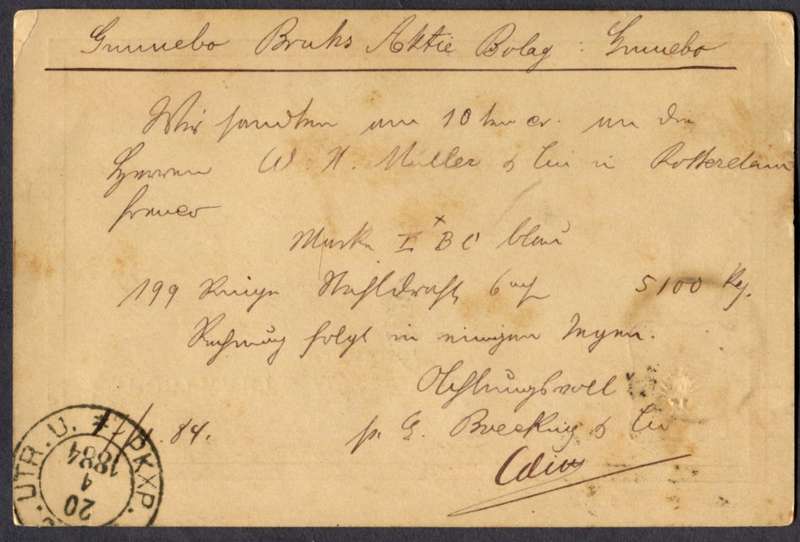 Gunnebo Bruks Aktie Bolag : Gunnebo
Wir sandten am 10 ten cr. an die
Herren W. H. Müller & Cie in Rotterdam
franco
Marke I B C blau
199 Ringe Stahldraht 5100 Kg.
Rechnung folgt in einigen Tagen.
Achtungsvoll
84. p. G. Boecking & Cie
PKXP. UTR. U.
20
4
1884